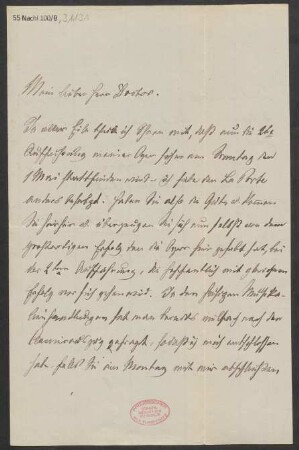 55 Nachl 100/B,
Mein lieber Herr Doctor.
In aller Eile theile ich Ihnen mit, daß nun die 2te
Aufführung meiner Oper schon am Sonntag den
1 Mai stattfinden wird – ich habe den
Haben Sie also die Güte u. kommen
Sie hierher u. überzeugen Sie sich nun selbst von dem
großartigen Erfolg den die Oper hier gehabt hat, bei
der 2ten Aufführung, die hoffentlich mit gleichem
Erfolg vor sich gehen wird. In den hiesigen Musika-
lienhandlungen hat man bereits vielfach nach dem
Clavierauszug gefragt, sodaß ich mich entschlossen
habe, falls Sie am Montag mit mir abschließen